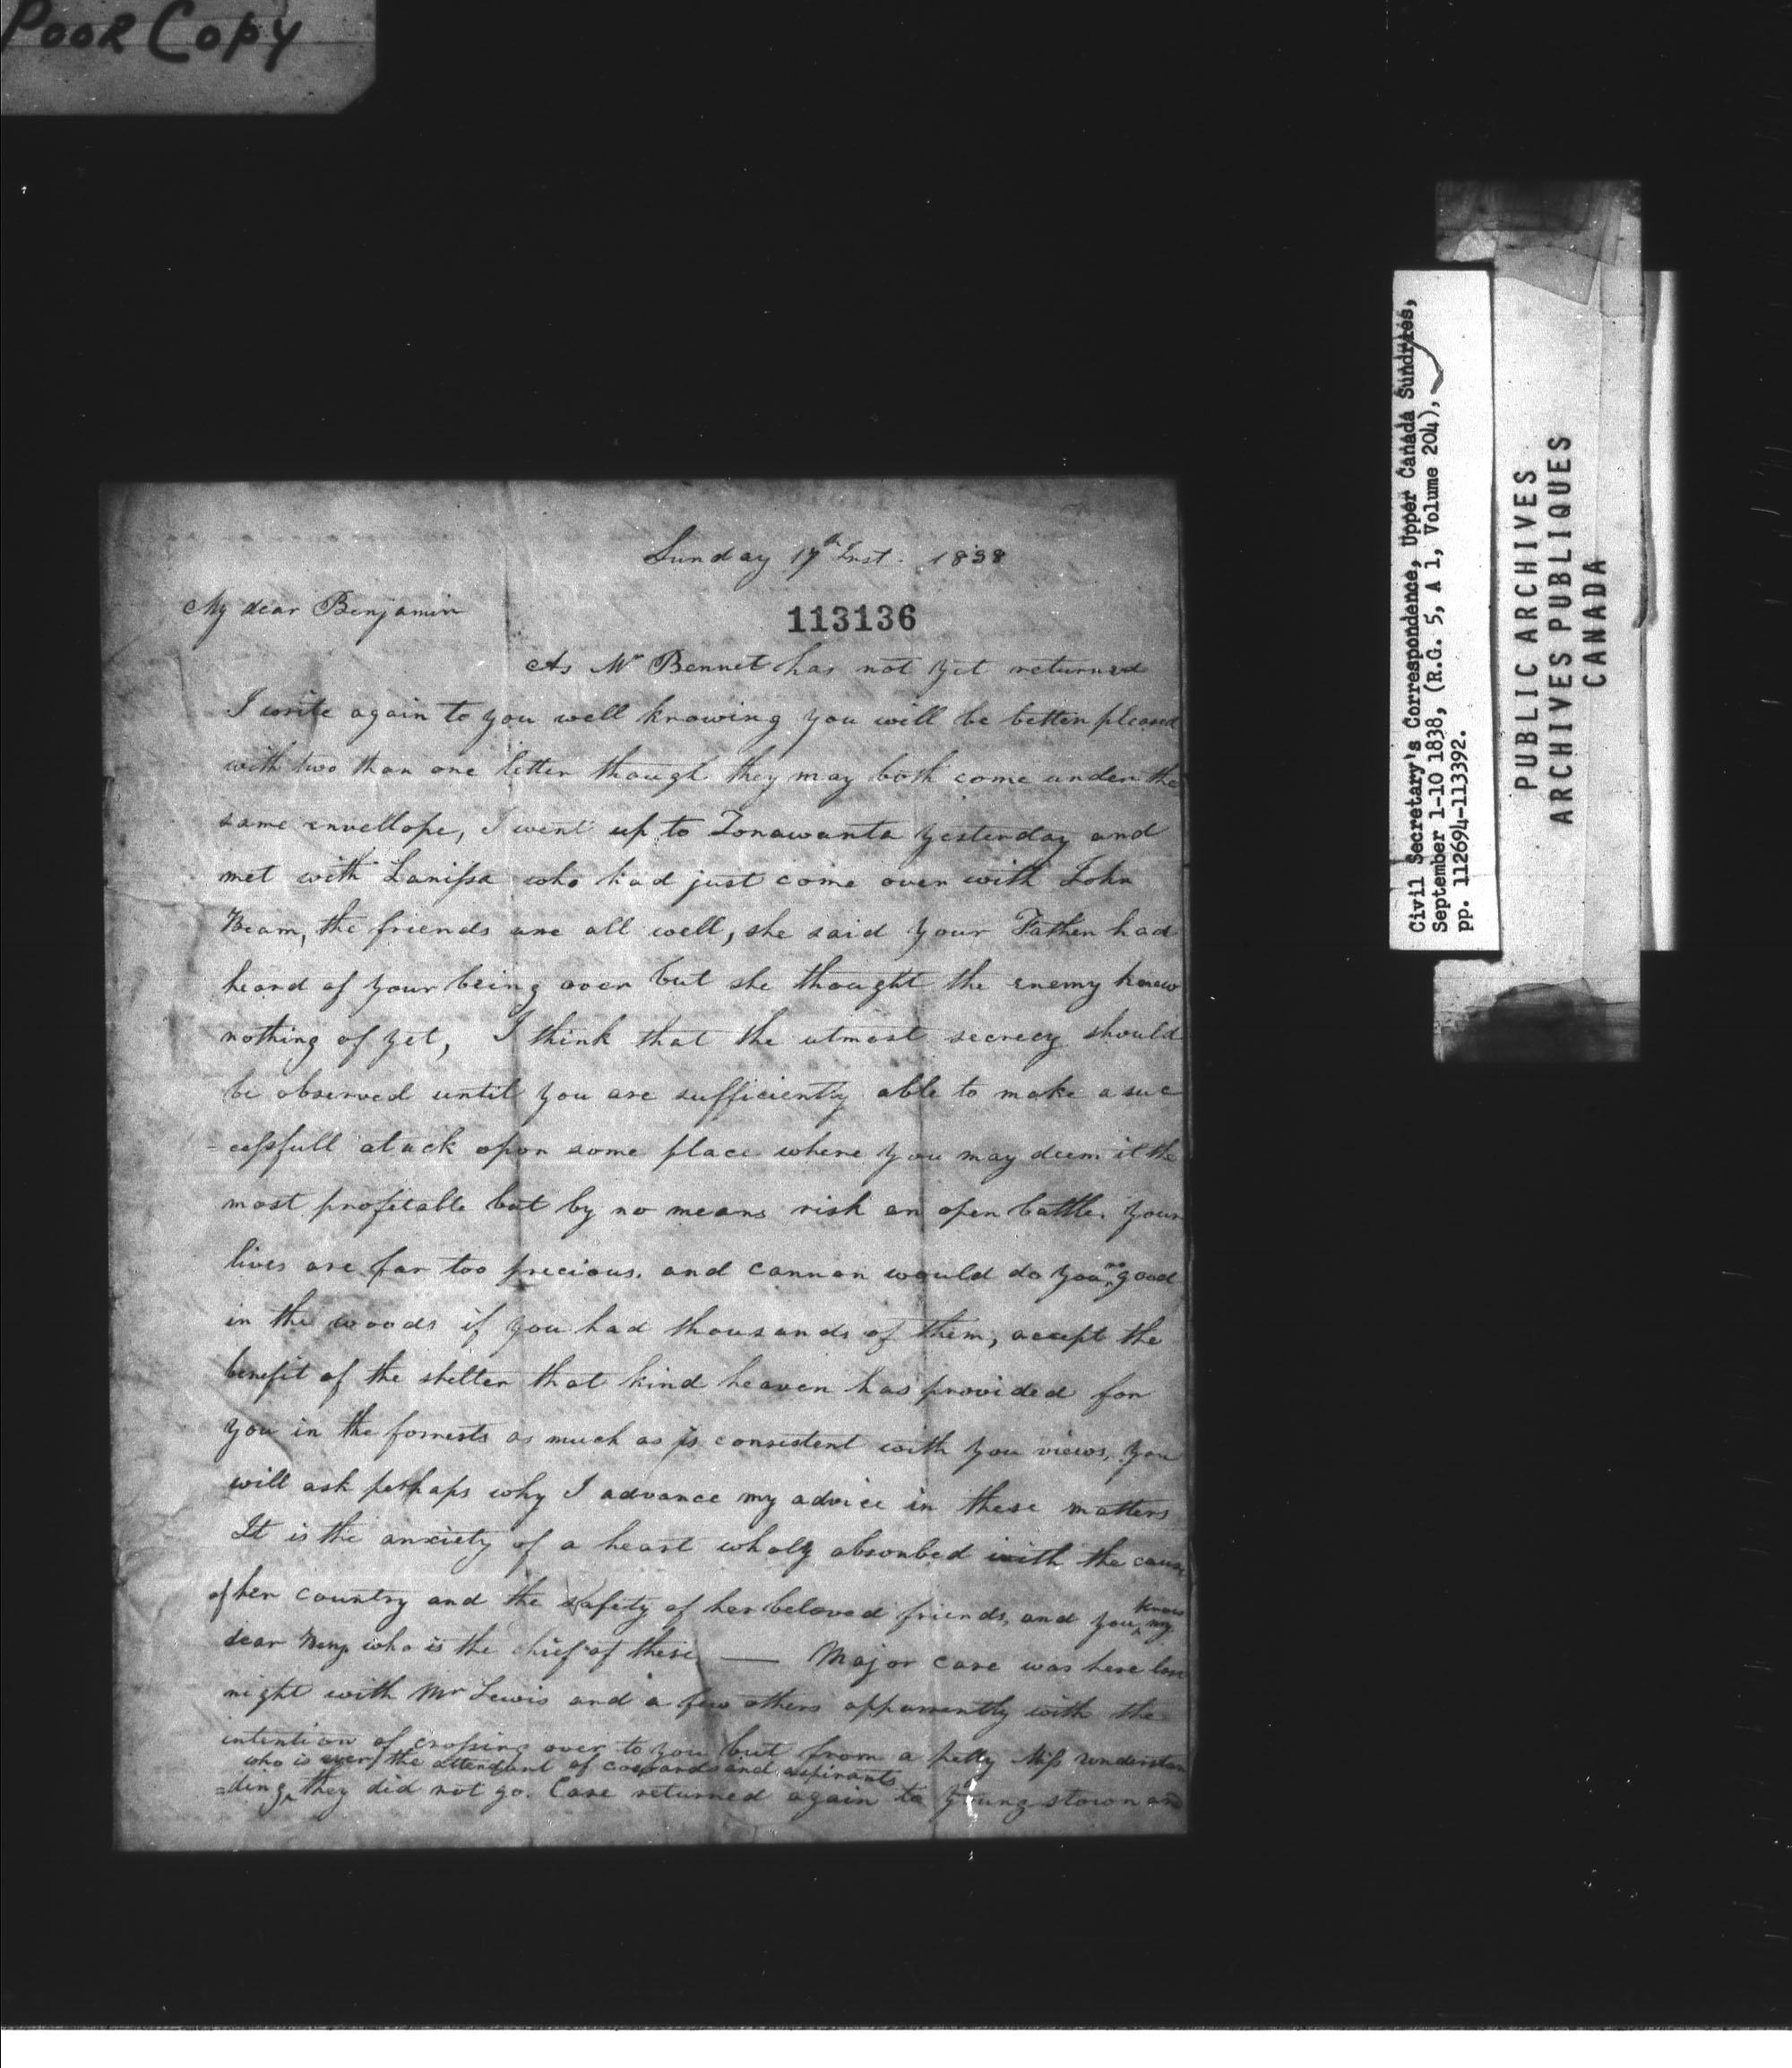 POOR COPY
Sunday 17th Inst. 1838
My dear Benjamin
113136
As Mr Bennet has not yet returned
I write again to you well knowing you will be better pleased
with two than one letter though they may both come under the
same envellope, I went up to Tonawanta yesterday and
met with Larissa who had just come over with John
Beam, the friends are all well, she said your Father had
heard of your being over but she thought the enemy knew
nothing of yet, I think that the utmost secrecy should
be observed until you are sufficiently able to make a suc
=cessfull atack opon some place where you may deem it the
most profitable but by no means risk an open battle. your
lives are far too precious. and cannon would do you no good
in the woods if you had thousands of them, accept the
benefit of the shelter that kind heaven has provided for
you in the forrests as much as is consistent with you views, you
will ask perhaps why I advance my advice in these matters
It is the anxiety of a heart wholy absorbed with the cause
of her country and the safety of her beloved friends, and you know my
dear Benj. who is the chief of these — Major Case was here
night with Mr Lewis and a few others apparrently with the
intention of crossing over to you but from a petty Miss understan
who is ever the attendant of cowards and aspirants
=ding they did not go. Case returned again to Youngstown and
Civil Secretary's Correspondence, Upper Canada Sundries,
September 1-10 1838, (R.G. 5, A 1, Volume 204),
pp. 112694-113392.
PUBLIC ARCHIVES
ARCHIVES PUBLIQUES
CANADA